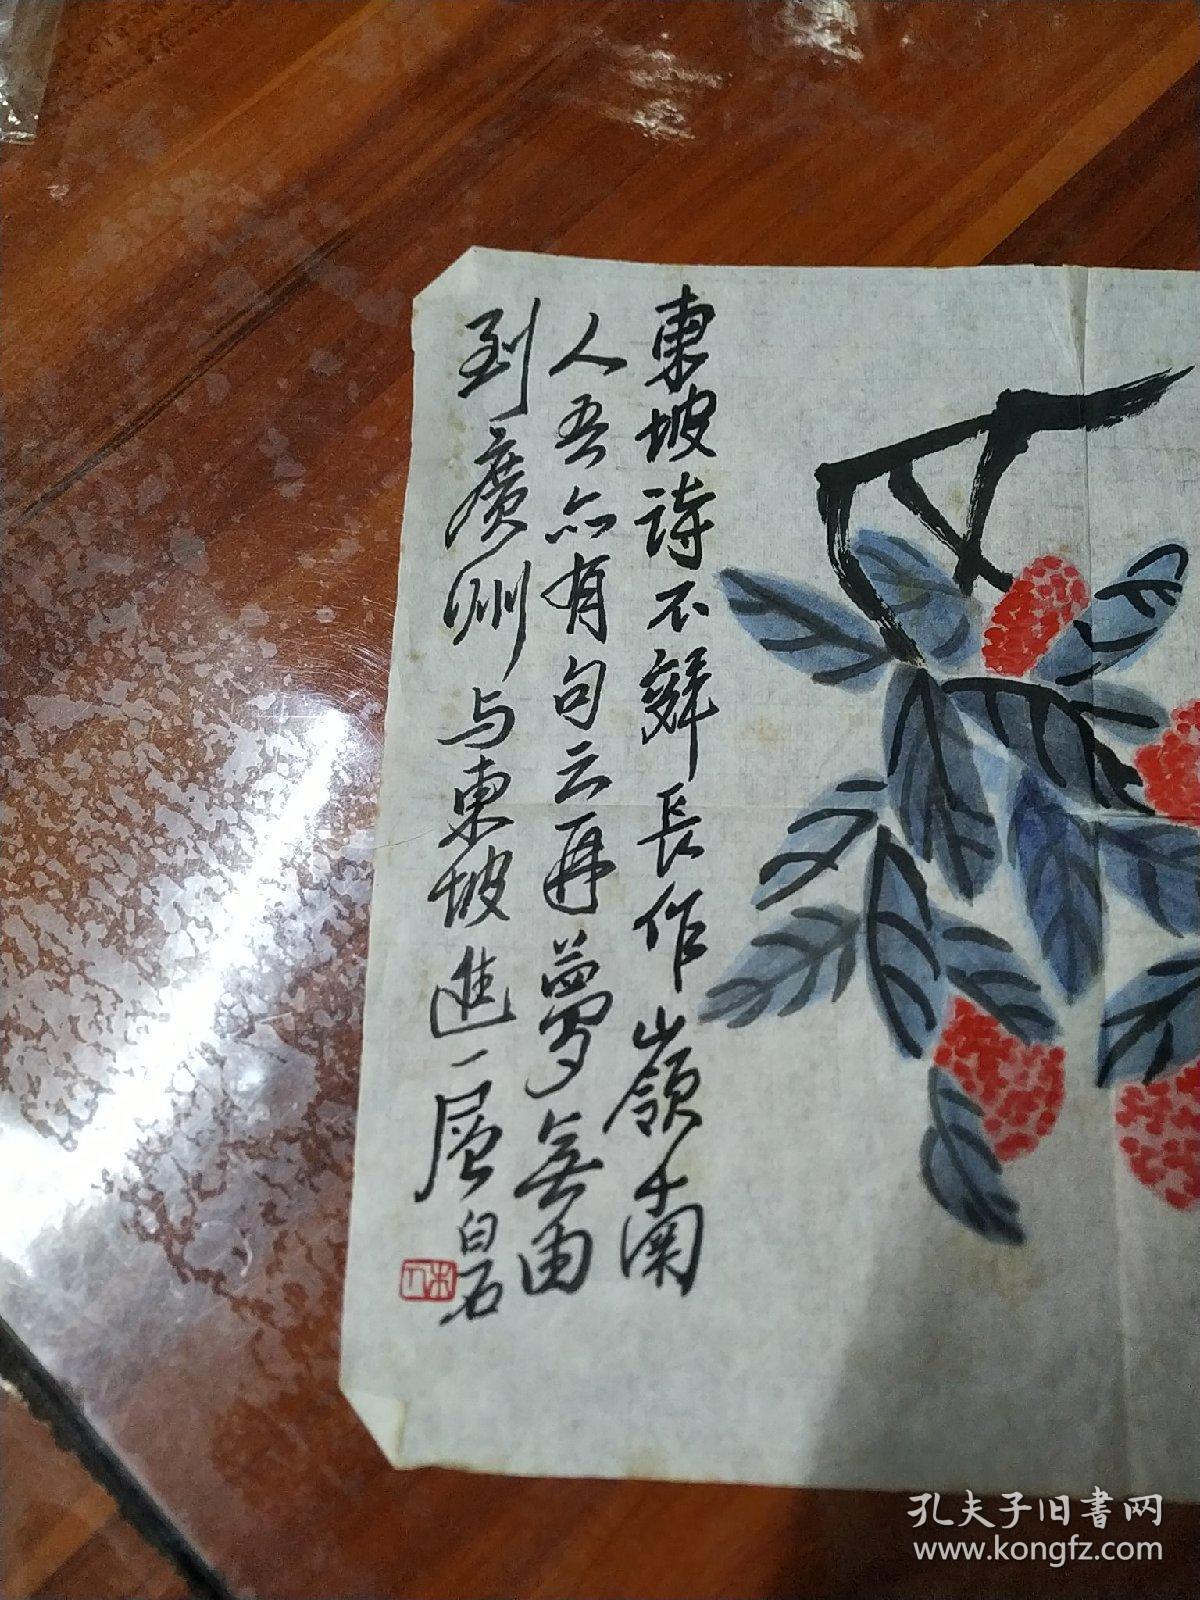 東坡詩不辭長作嶺南
人吾亦有句云再夢無由
到廣州与東坡進一層
白石
木人
孔夫子旧书网
www.kongfz.com